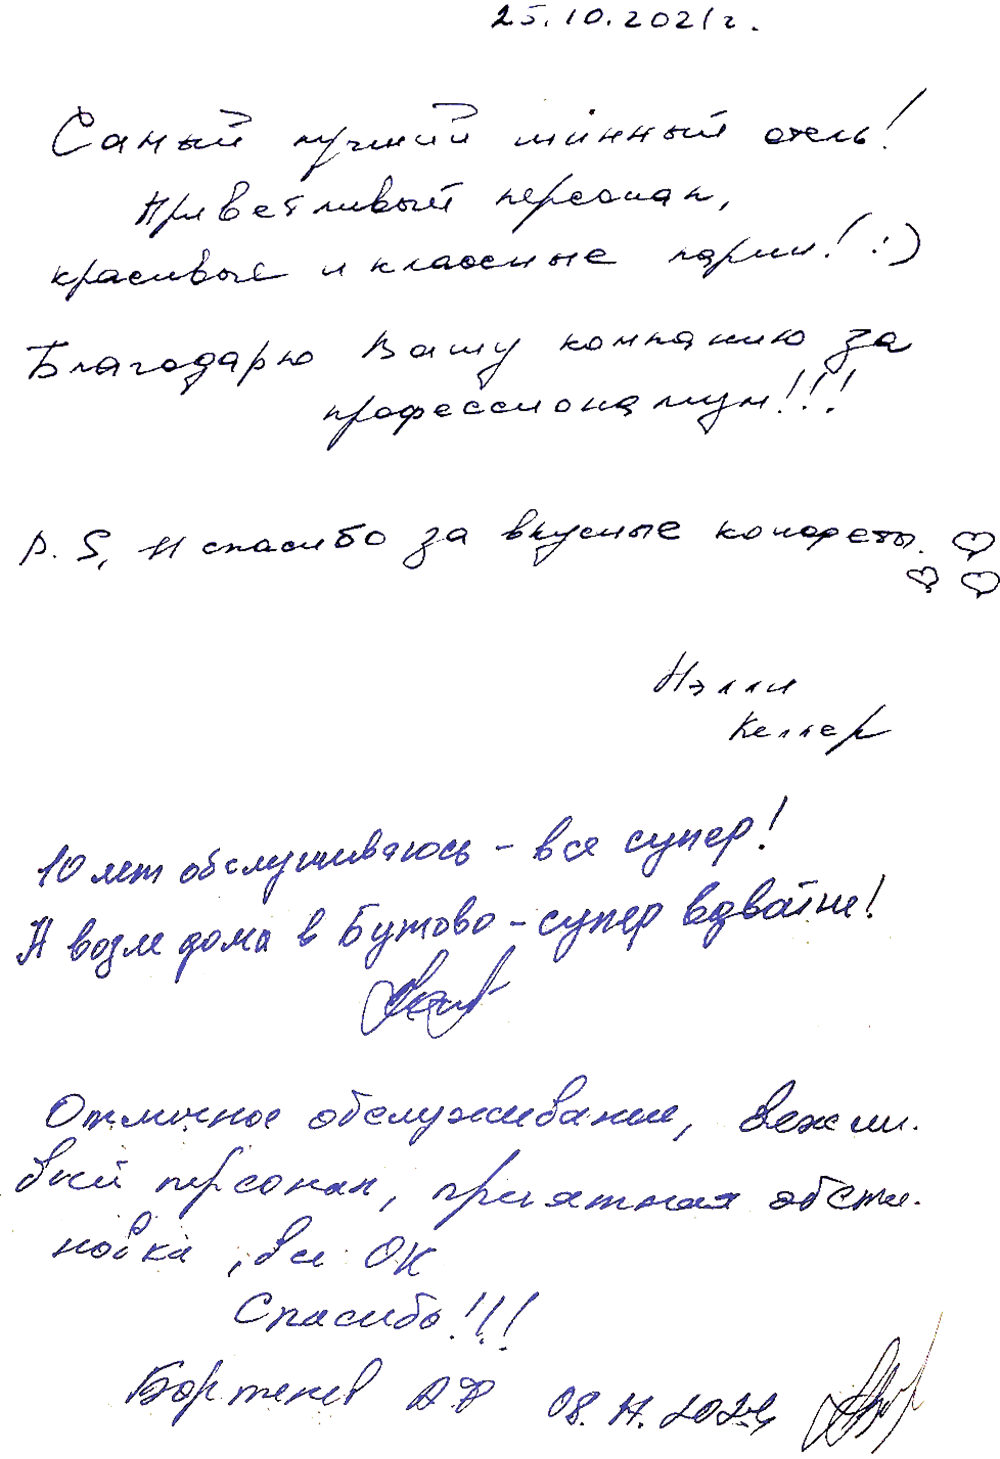 25.10.2021г.
Самый лучший шинный отель!
Приветливый персонал,
красивые и классные парни! (:)
Благодарю Вашу компанию за
профессионализм!!!
P.S. И спасибо за вкусные конфеты.
Нэлли
Келлер
10 лет обслуживаюсь - все супер!
А возле дома в Бутово - супер вдвойне!
Отличное обслуживание, вежли-
вый персонал, приятная обста-
новка, все ОК
Спасибо!!!
Бортенев А.Ф 08.11.2021